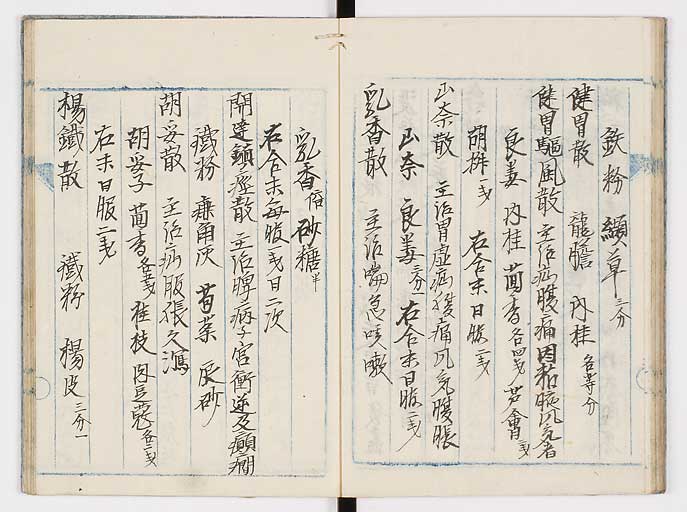 鉄粉 纈草 三分
健胃散 龍膽 肉桂 各等分
健胃駆風散 主治病腹痛因粘液風気者
良姜 肉桂 茴香 各四戔 芦薈 戔
胡椒 一戔 右合末日服 二戔
山奈散 主治胃虚病後腹痛風気腹脹
山奈 良姜 三分一 右合末日服 二戔
乳香散 主治喘急咳嗽
乳香 倍 砂糖 半
右合末毎服 一戔 日二次
開達鎮痙散 主治脾病子宮衝逆及癲癇
鐵粉 鹿角灰 莨菪葉 辰砂
胡妥散 主治病腹張久瀉
胡妥子 茴香 各五戔 桂枝 肉豆蔻 各二戔
右末日服二戔
楊鐵散 鐵粉 楊皮 三分一